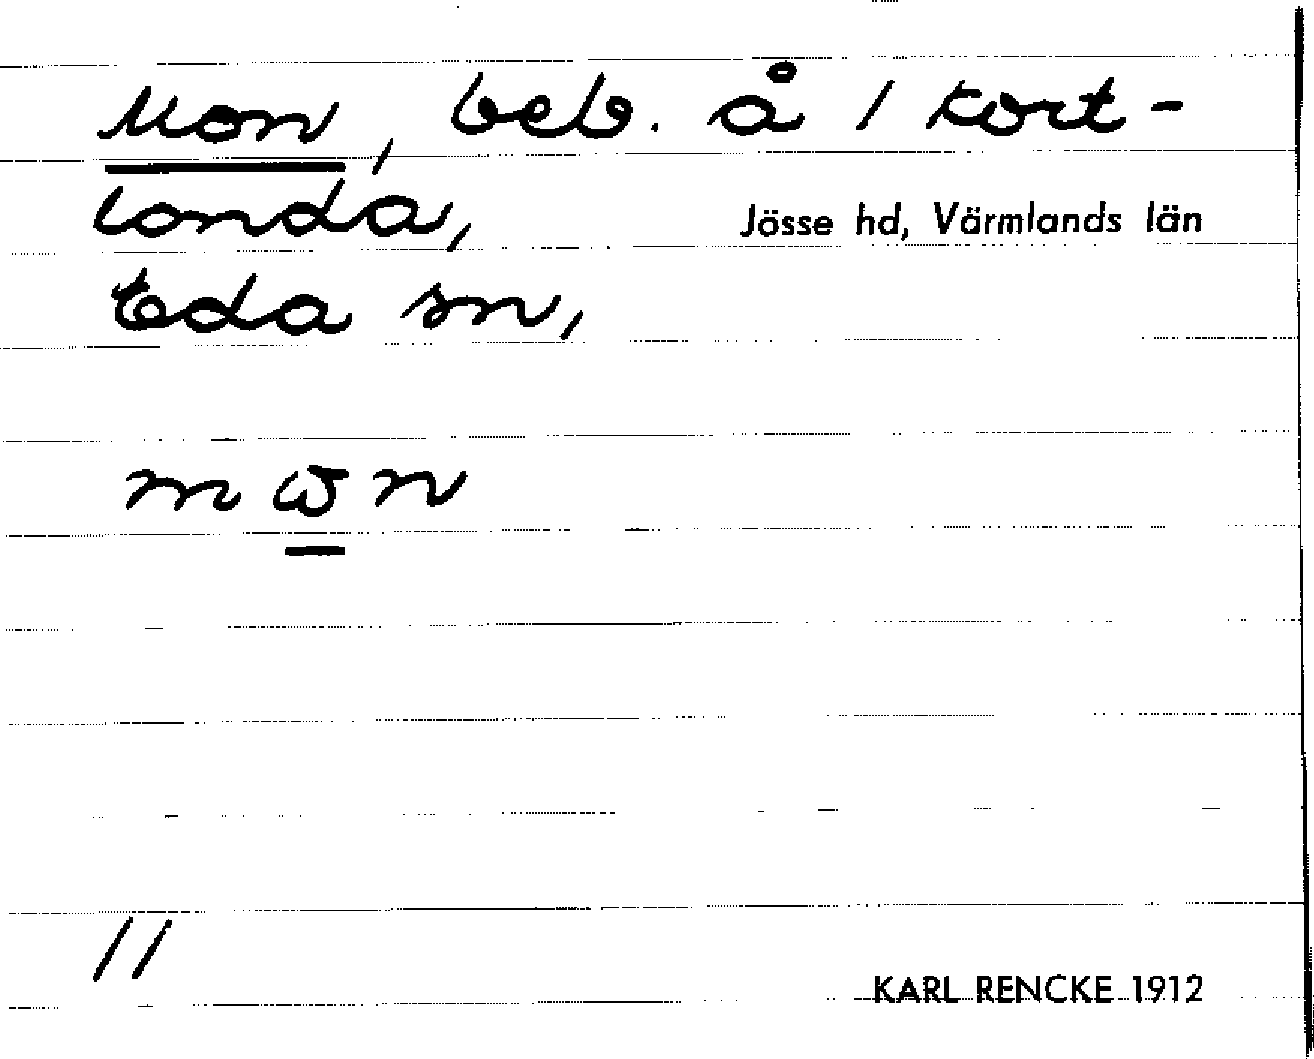 Mon, beb. å / Kort-
landa,
Jösse hd, Värmlands län
Eda sn,
mωn
11
KARL RENCKE 1912